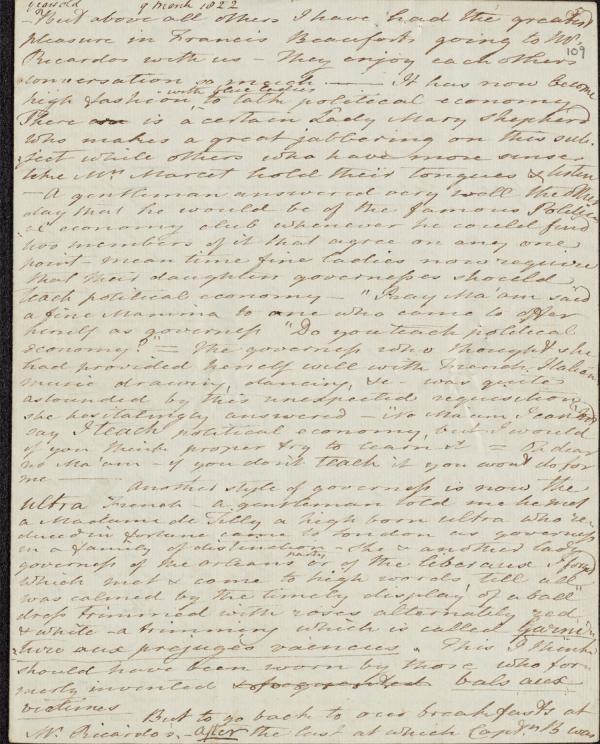 9 March 1822
109
- But above all others I have had the greatest
pleasure in Francis Beaufort's going to Mr.
Ricardos with us - They enjoy each others
conversation so much — It has now become
high fashion with blue ladies to talk political economy
There is a certain Lady Mary Shepherd
who makes a great jabbering on this sub-
ject while others who have more sense
like Mrs Marcet hold their tongues & listen
- A gentleman answered very well the other
day that he would be of the famous Politic
al economy club whenever he could find
two members of it that agree on any one
point - mean time fine ladies now require
that their daughters governesses should
teach political economy - "Pray Ma'am said
a fine Mamma to one who came to offer
herself as governess "Do you teach political
economy?" = The governess who thought she
had provided herself well with French Italian
music drawing, dancing, &c - was quite
astounded by this unexpected requisition
she hesitatingly answered - "No Ma'am I cannot
say I teach political economy, but I would
if you think proper try to learn it = Oh dear
no Ma'am - if you don't teach it you won't do for
me —
Another style of governess is now the
ultra French - a gentleman told me he met
a Madame de Tilly a high born ultra who re-
duced in fortune came to London as governess
in a family of distinction - She & another lady
governess of the Orleans or of the liberaux party I forget
which met & came to high words till all
was calmed by the timely display of a ball
dress trimmed with roses alternately red
& white - a trimming which is called garni-
ture aux préjugés vaincus. This I think
should have been worn by those who for-
merly invented bals aux
victimes
But to go back to our breakfasts at
Mr Ricardos - after the last at which Captn B was